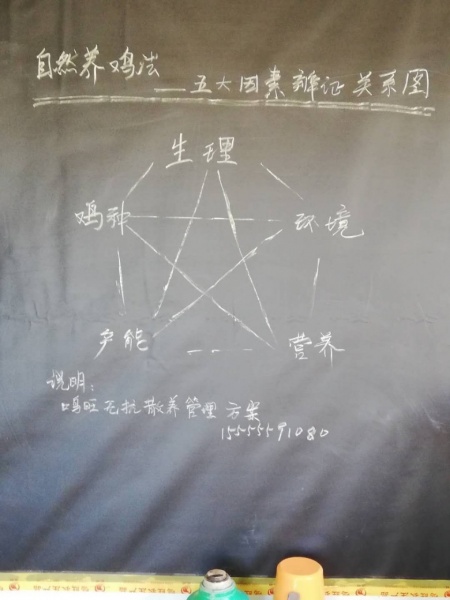 自然养鸡法
——五大因素辩证关系图
生理
鸡神
环境
产能
营养
说明:
鸣旺无抗散养管理方案
15555591080